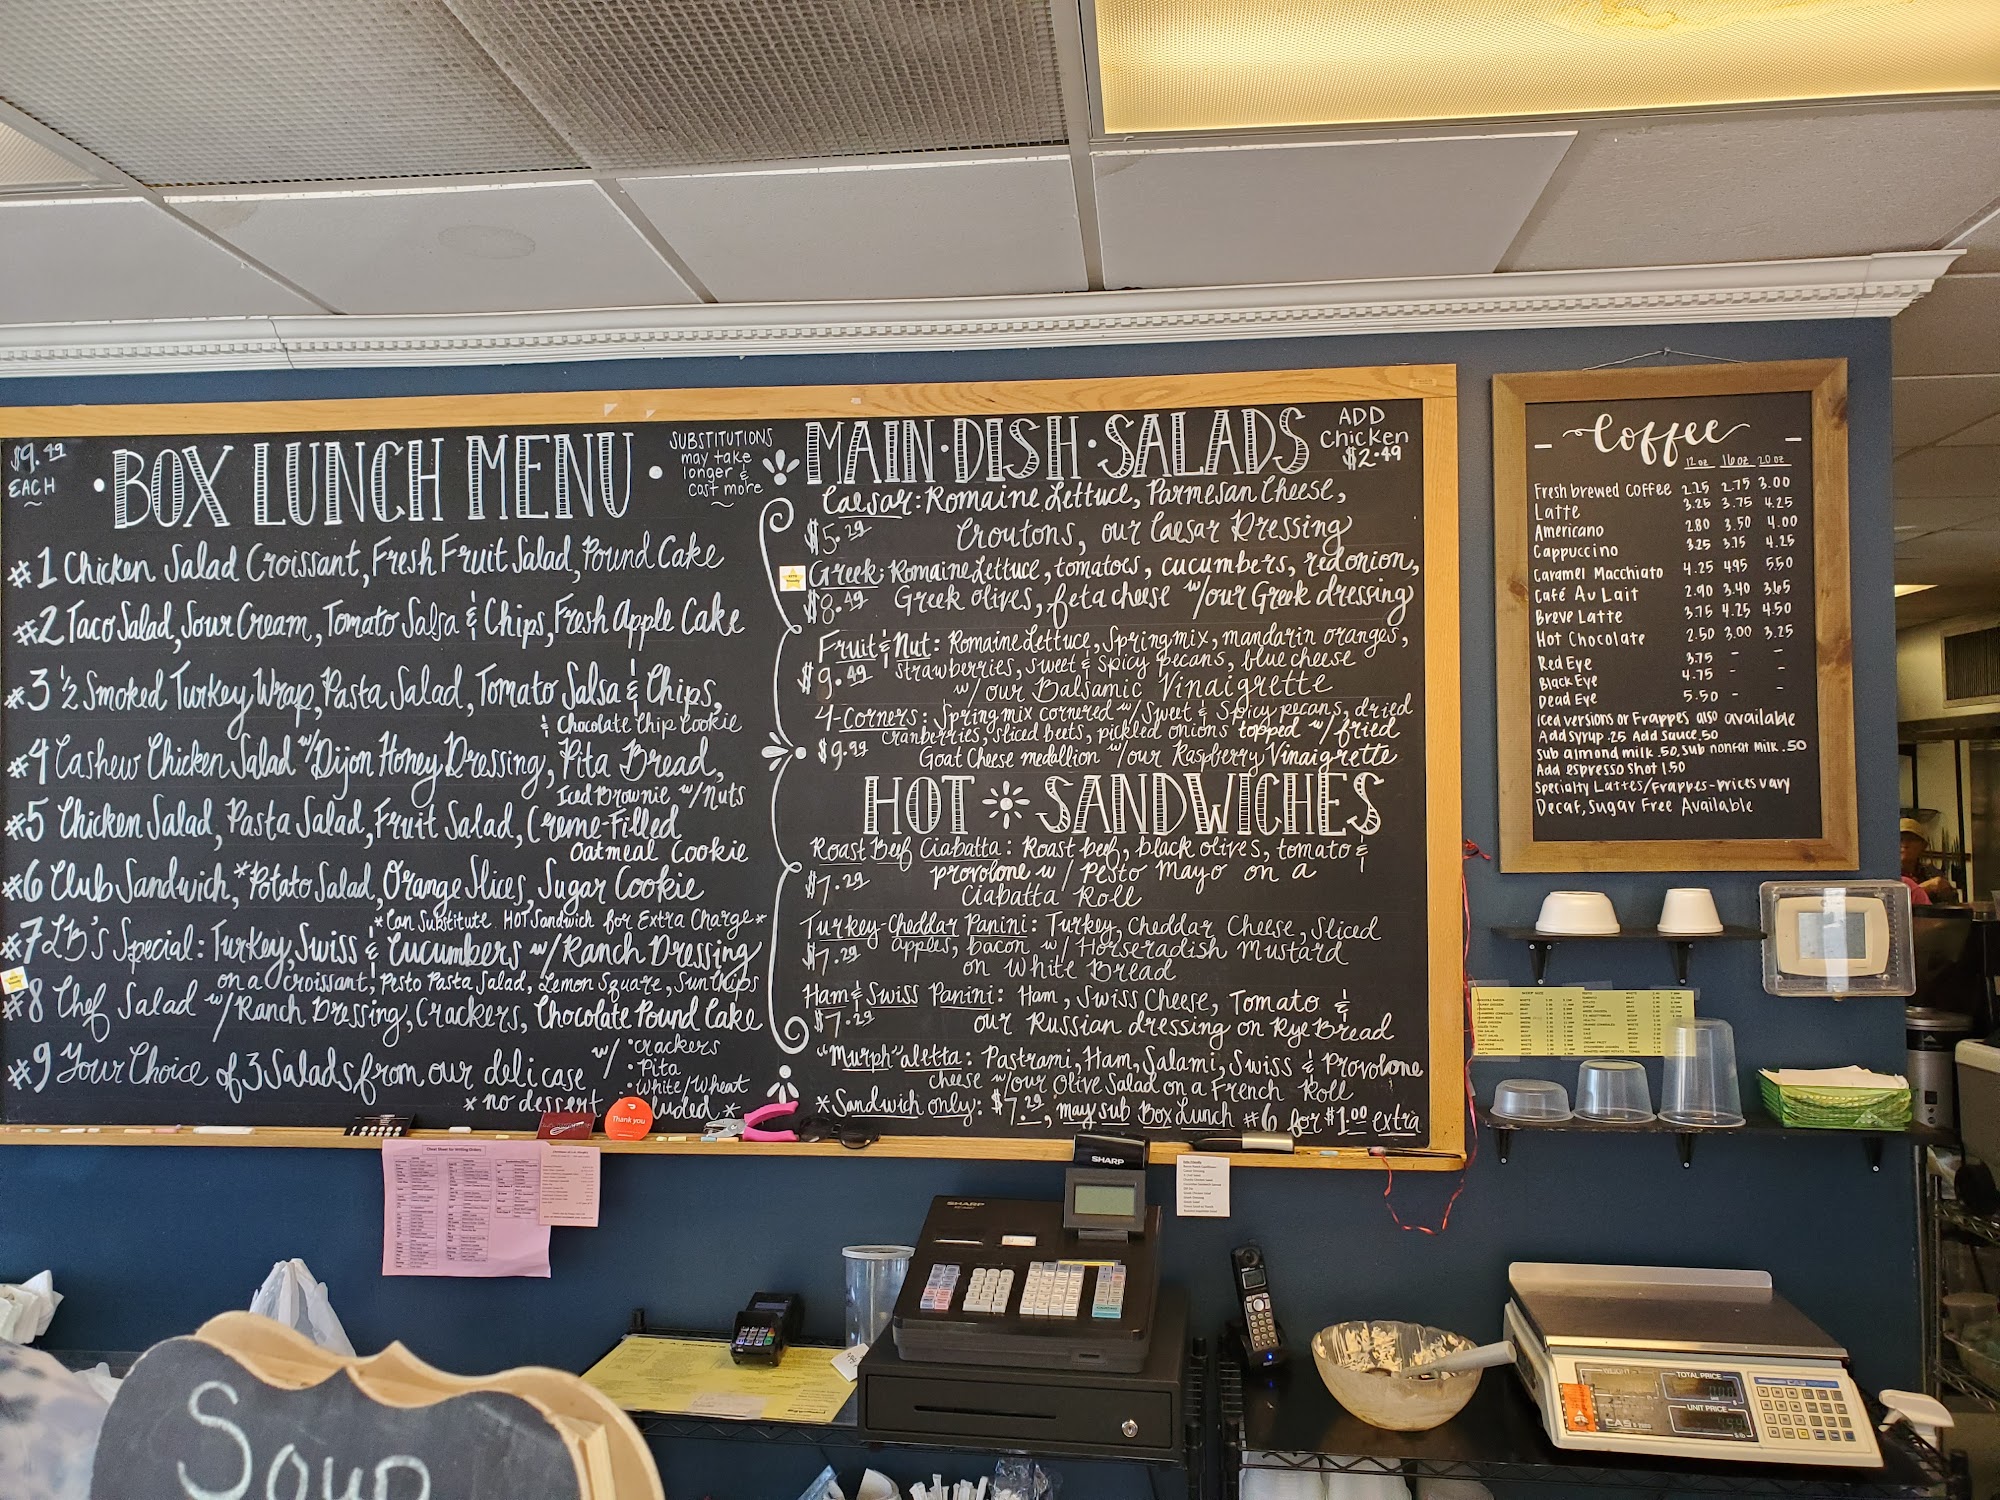 $9.49
EACH
BOX LUNCH MENU
SUBSTITUTIONS
may take
longer &
cost more
#1 Chicken Salad Croissant, Fresh Fruit Salad, Pound Cake
#2 Taco Salad, Sour Cream, Tomato Salsa & Chips, Fresh Apple Cake
#3 ½ Smoked Turkey Wrap, Pasta Salad, Tomato Salsa & Chips,
& Chocolate Chip Cookie
#4 Cashew Chicken Salad w/ Dijon Honey Dressing, Pita Bread,
Iced Brownie w/ Nuts
#5 Chicken Salad, Pasta Salad, Fruit Salad, Creme-Filled
Oatmeal Cookie
#6 Club Sandwich, *Potato Salad, Orange Slices, Sugar Cookie
*Can Substitute HOT Sandwich for Extra Charge*
#7 LB's Special: Turkey, Swiss & Cucumbers w/ Ranch Dressing
on a Croissant, Pesto Pasta Salad, Lemon Square, Sunchips
#8 Chef Salad w/ Ranch Dressing, Crackers, Chocolate Pound Cake
#9 Your Choice of 3 Salads from our deli case w/ • crackers
• Pita
• White/Wheat
* no dessert included *
MAIN • DISH • SALADS
ADD
Chicken
$2.49
Caesar: Romaine Lettuce, Parmesan Cheese,
$5.29 Croutons, our Caesar Dressing
Greek: Romaine Lettuce, tomatoes, cucumbers, red onion,
$8.49 Greek olives, feta cheese w/ our Greek dressing
Fruit & Nut: Romaine Lettuce, Spring mix, mandarin oranges,
$9.49 strawberries, sweet & spicy pecans, blue cheese
w/ our Balsamic Vinaigrette
4-Corners: Spring mix cornered w/ Sweet & Spicy pecans, dried
cranberries, sliced beets, pickled onions topped w/ fried
$9.99 Goat Cheese medallion w/ our Raspberry Vinaigrette
HOT SANDWICHES
Roast Beef Ciabatta: Roast beef, black olives, tomato &
$7.29 provolone w/ Pesto Mayo on a
Ciabatta Roll
Turkey-Cheddar Panini: Turkey, Cheddar Cheese, Sliced
$7.29 apples, bacon w/ Horseradish Mustard
on White Bread
Ham & Swiss Panini: Ham, Swiss Cheese, Tomato &
$7.29 our Russian dressing on Rye Bread
"Murph"aletta: Pastrami, Ham, Salami, Swiss & Provolone
cheese w/ our Olive Salad on a French Roll
*Sandwich only: $7.29, may sub Box Lunch #6 for $1.00 extra
Coffee
12 oz 16 oz 20 oz
Fresh brewed Coffee 2.25 2.75 3.00
Latte 3.25 3.75 4.25
Americano 2.80 3.50 4.00
Cappuccino 3.25 3.75 4.25
Caramel Macchiato 4.25 4.95 5.50
Café Au Lait 2.90 3.40 3.65
Breve Latte 3.75 4.25 4.50
Hot Chocolate 2.50 3.00 3.25
Red Eye 3.75 - -
Black Eye 4.75 - -
Dead Eye 5.50 - -
Iced versions or Frappes also available
Add syrup .25 Add sauce .50
Sub almond milk .50, sub nonfat Milk .50
Add espresso shot 1.50
Specialty Lattes/Frappes - prices vary
Decaf, Sugar Free Available
Thank you
Cheat Sheet for Writing Orders
SHARP
SHARP
TOTAL PRICE
UNIT PRICE
CAS
Soup